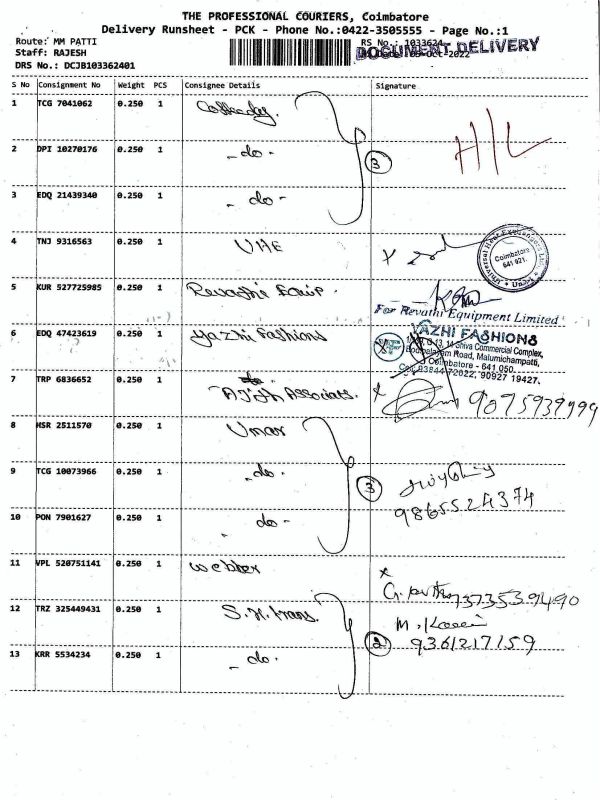 THE PROFESSIONAL COURIERS, Coimbatore
Delivery Runsheet - PCK - Phone No.:0422-3505555 - Page No.:1
Route: MM PATTI
Staff: RAJESH
DRS No.: DCJB103362401
RS No.: 1033624
DOCUMENT DELIVERY
S No Consignment No Weight PCS Consignee Details Signature
1 TCG 7041062 0.250 1
2 DPI 10270176 0.250 1 - do - 3 H/L
3 EDQ 21439340 0.250 1 - do -
4 TNJ 9316563 0.250 1 UHE
Universal Heat Exchangers Ltd.
Coimbatore
641 021.
5 KUR 527725985 0.250 1 Revathi Equip.
For Revathi Equipment Limited
6 EDQ 47423619 0.250 1 Yazhi Fashions
YAZHI FASHIONS
Shiva Commercial Complex,
Road, Malumichampatti,
Coimbatore - 641 050.
72022, 90927 19427.
7 TRP 6836652 0.250 1 Associats. 9075939999
8 HSR 2511570 0.250 1 Umar
9 TCG 10073966 0.250 1 - do - 3
9865524374
10 PON 7901627 0.250 1 - do -
11 VPL 520751141 0.250 1 webtex
7373539490
12 TRZ 325449431 0.250 1 S.N. trans.
M.
2 9361217159
13 KRR 5534234 0.250 1 - do -